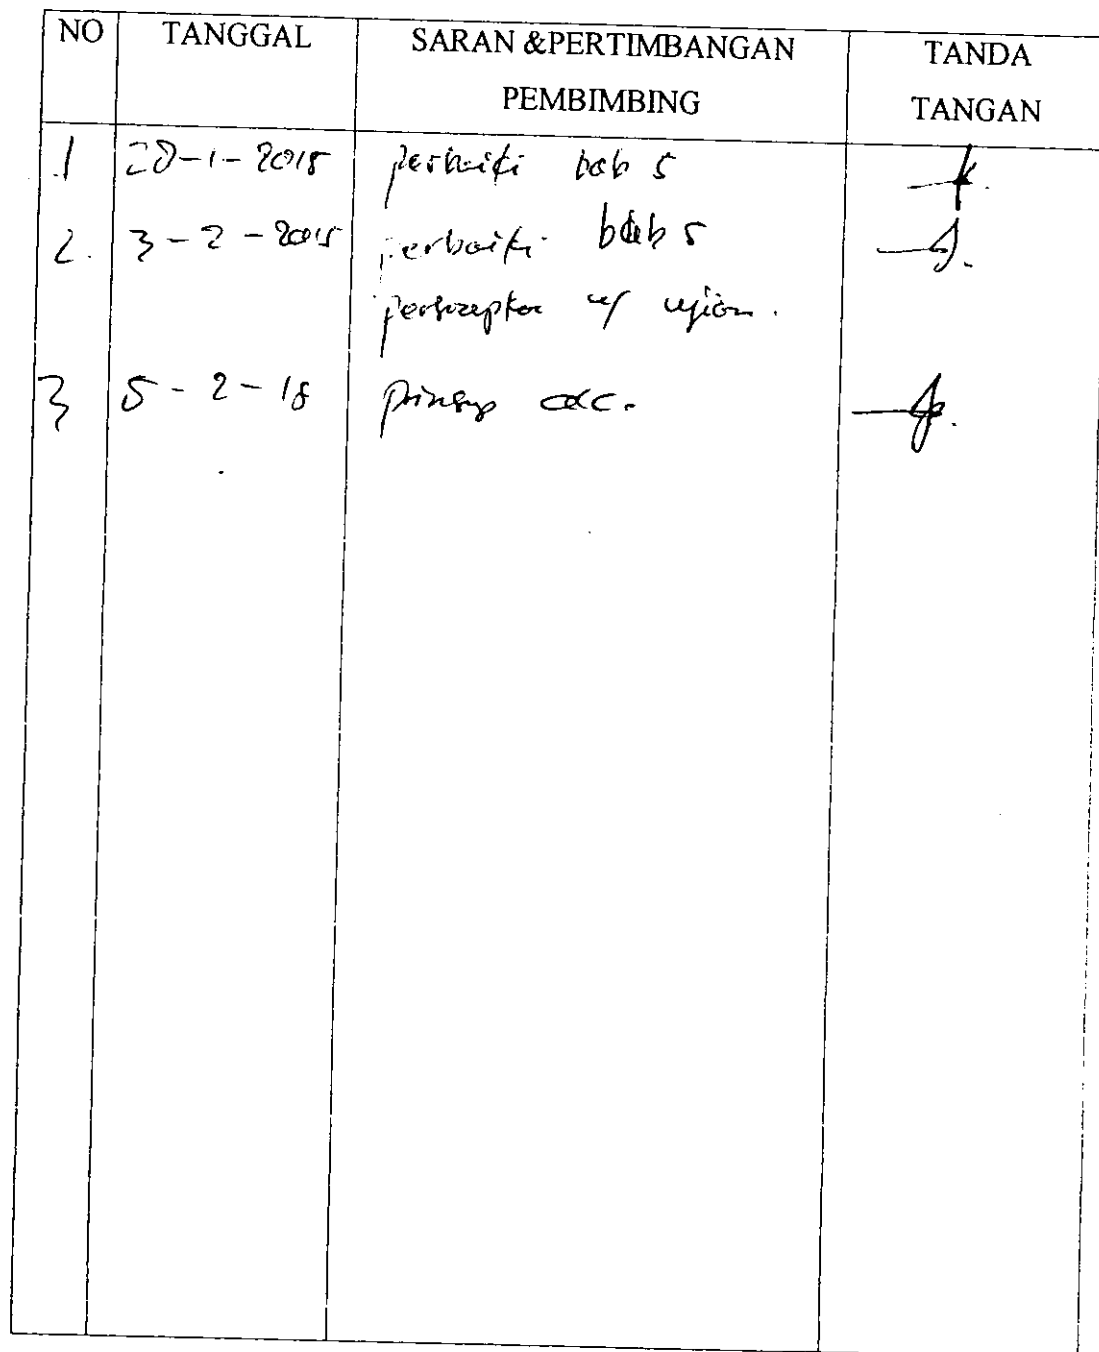 NO TANGGAL SARAN &PERTIMBANGAN PEMBIMBING TANDA TANGAN
1 28-1-2015 perbaiki bab 5
2. 3-2-2015 perbaiki bab 5
ujian.
3 5-2-15 prinsip acc.